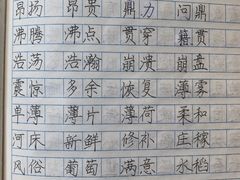 昂扬 昂贵 鼎力 问鼎
沸腾 沸点 贯穿 籍贯
浩荡 浩瀚 崩溃 崩盘
震惊 多余 恢复 薄雾
单薄 薄片 薄荷 柔和
河床 新鲜 修补 庄稼
风俗 葡萄 满意 水稻